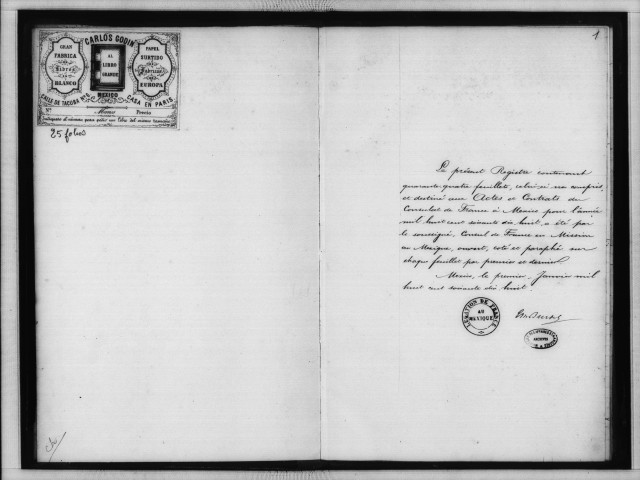 CARLOS GODIN
GRAN
FABRICA
DE
LIBROS
EN
BLANCO
AL
LIBRO
GRANDE
PAPEL
SURTIDO
DE
EUROPA
CALLE DE TACUBA Nº
MEXICO
CASA EN PARIS
Nº
Mano
Precio
25 folios
1
Le présent Registre contenant
quarante quatre feuillets, celui-ci non compris,
et destiné aux Actes et Contrats du
Consulat de France à Mexico pour l'année
mil huit cent soixante dix huit, a été par
le soussigné, Consul de France en Mission
au Mexique, ouvert, coté et paraphé sur
chaque feuillet par premier et dernier.
Mexico, le premier Janvier mil
huit cent soixante dix huit
LEGATION DE FRANCE
AU
MEXIQUE
ARCHIVES